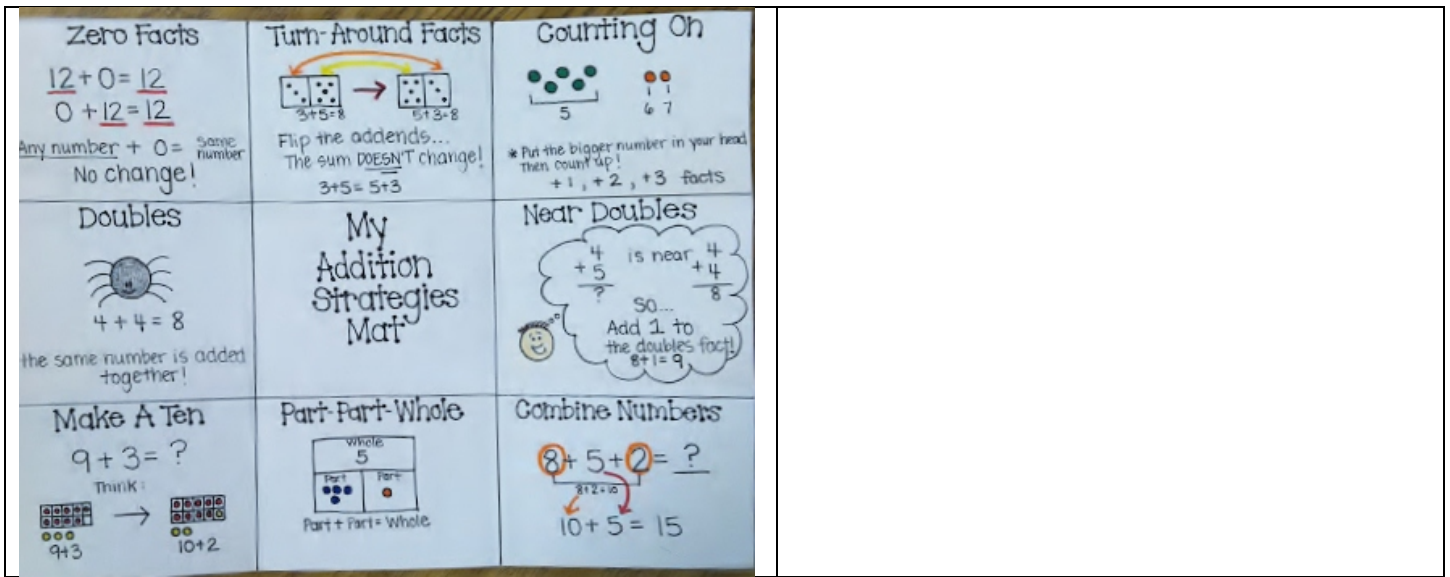 Zero Facts
12 + 0 = 12
0 + 12 = 12
Any number + 0 = same number
No change!
Turn-Around Facts
3+5=8
5+3=8
Flip the addends...
The sum DOESN'T change!
3+5 = 5+3
Counting On
5
6 7
* Put the bigger number in your head
Then count up!
+1, +2, +3 facts
Doubles
4 + 4 = 8
the same number is added
together!
My
Addition
Strategies
Mat
Near Doubles
4 is near 4
+ 5 + 4
? 8
So...
Add 1 to
the doubles fact!
8+1 = 9
Make A Ten
9 + 3 = ?
Think:
9+3
10+2
Part-Part-Whole
Whole
5
Part Part
Part + Part = Whole
Combine Numbers
8 + 5 + 2 = ?
8+2=10
10 + 5 = 15